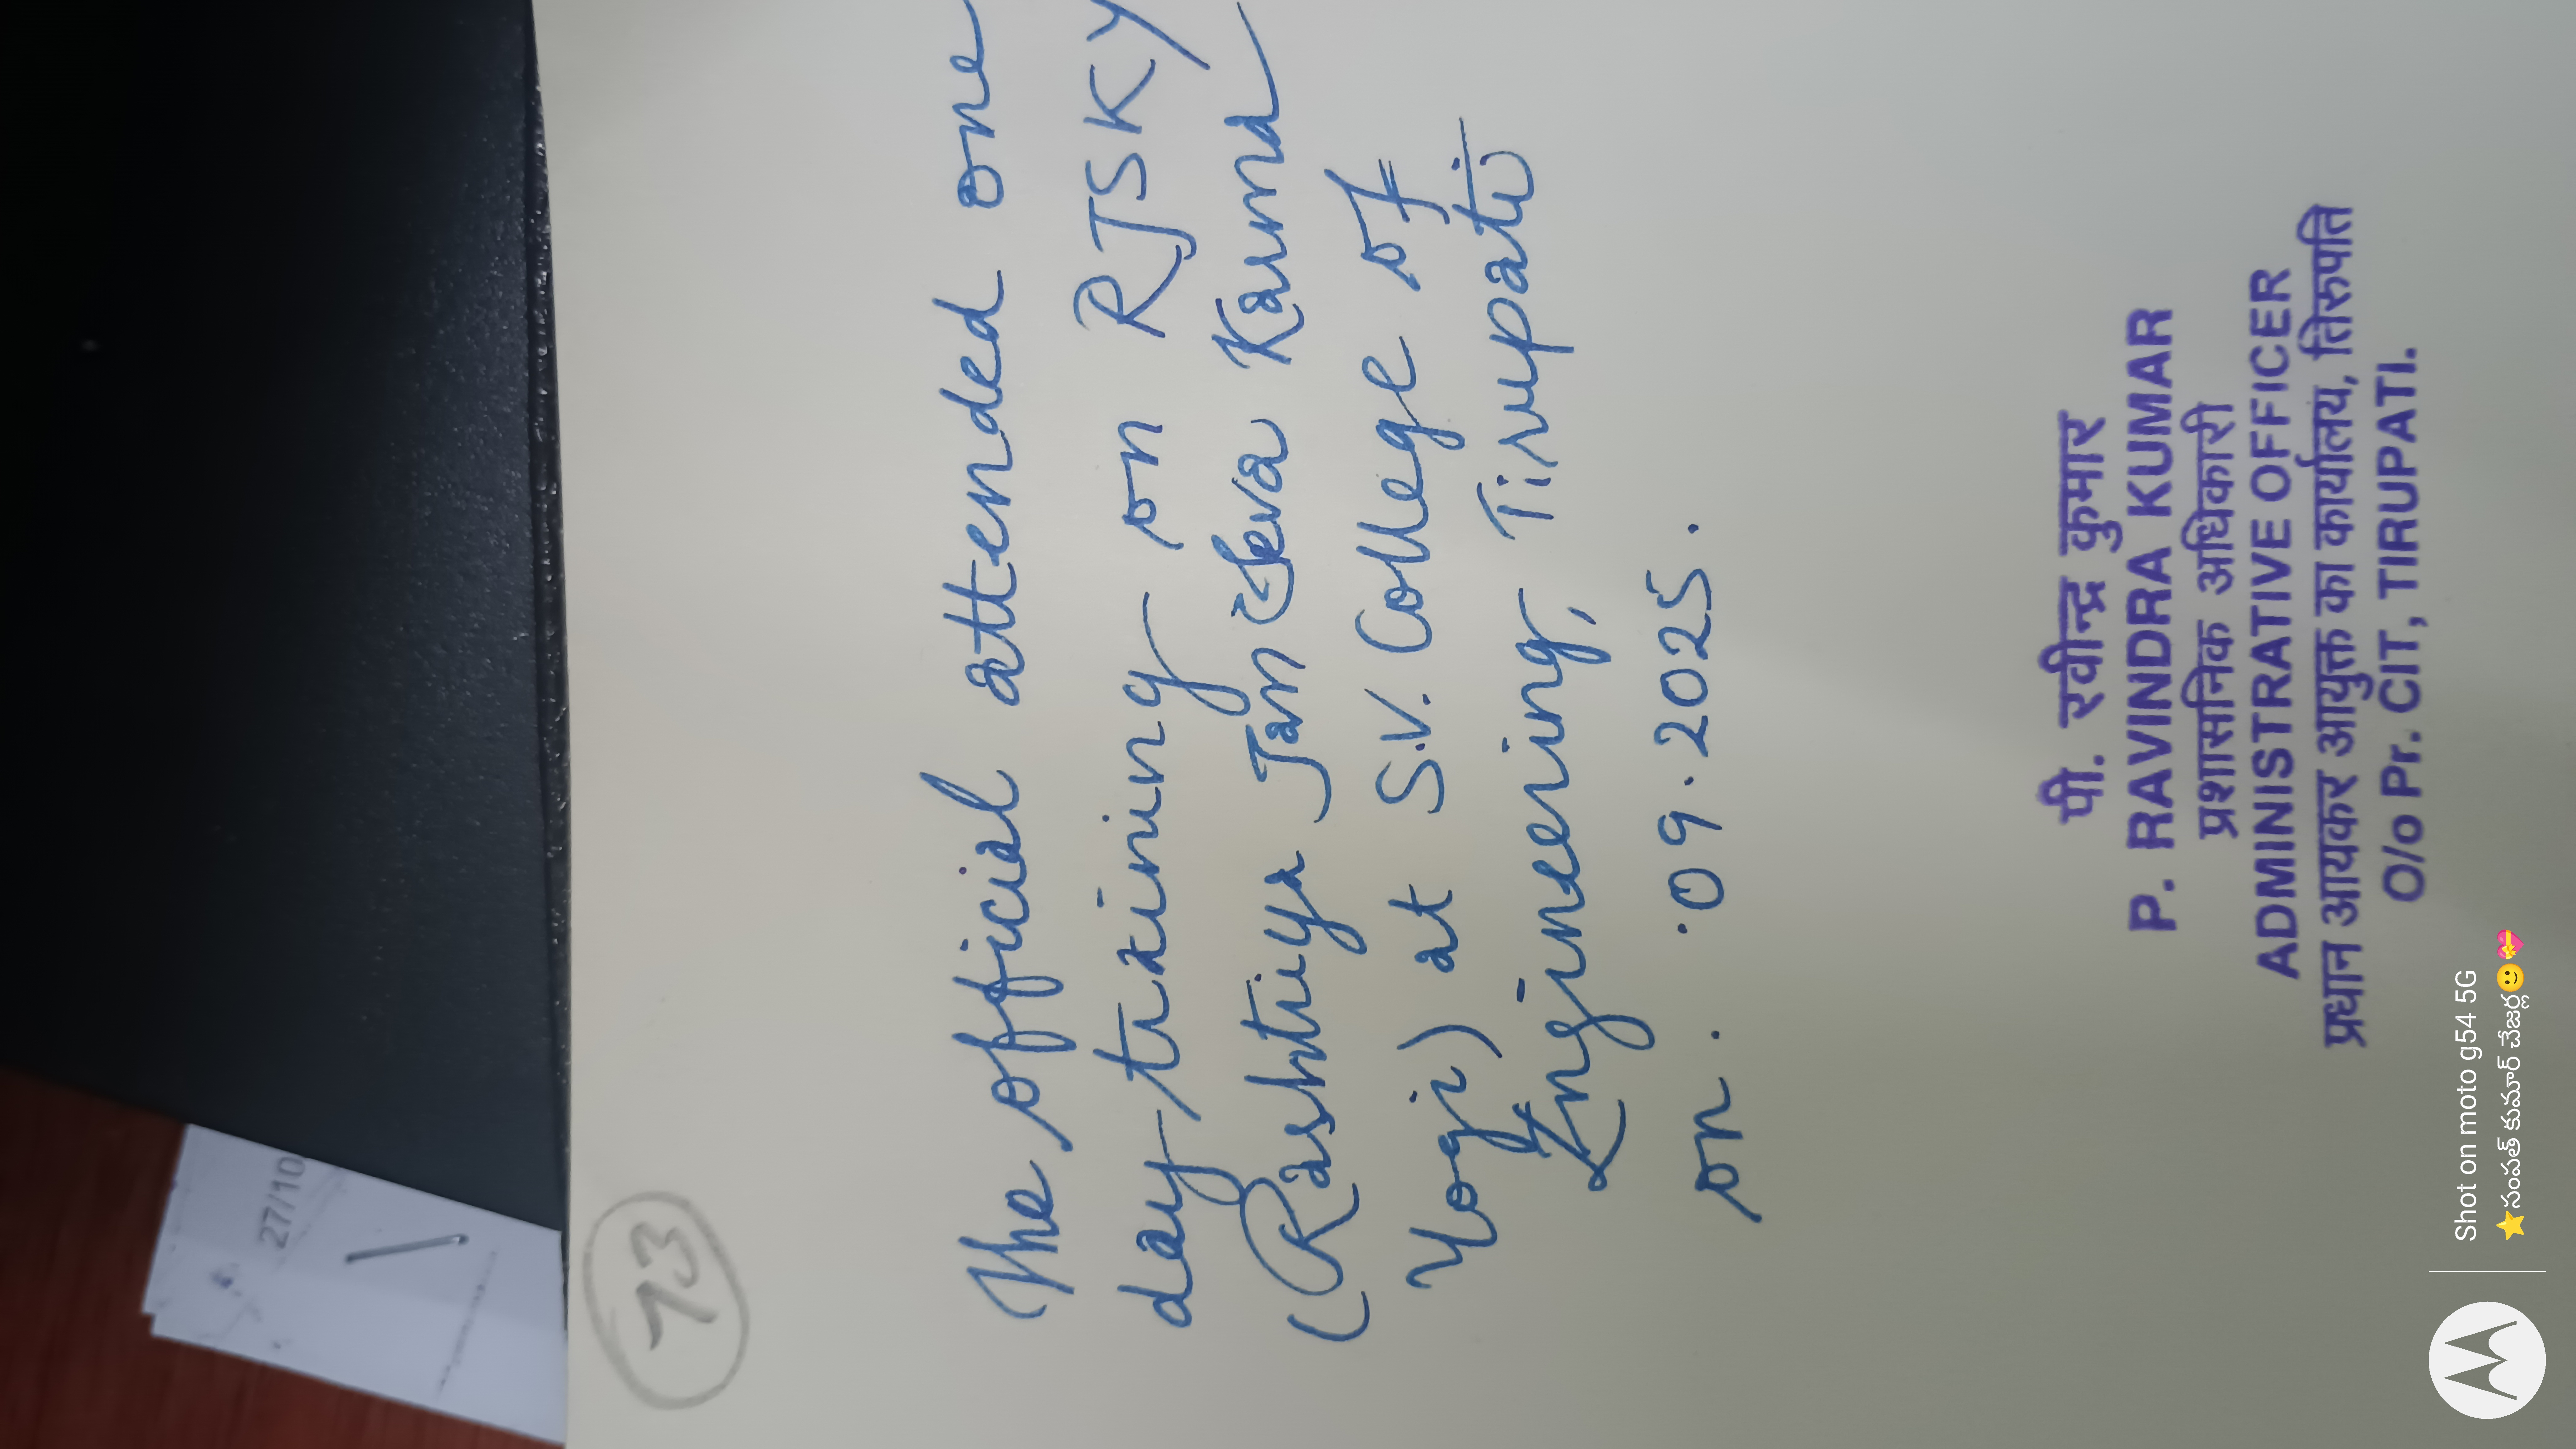 27/10
73
The official attended one
day-training on RJSKY
(Rashtriya Jan Seva Karma
Yogi) at S.V. College of
Engineering, Tirupati
on . .09.2025.
पी. रवीन्द्र कुमार
P. RAVINDRA KUMAR
प्रशासनिक अधिकारी
ADMINISTRATIVE OFFICER
प्रधान आयकर आयुक्त का कार्यालय, तिरुपति
O/o Pr. CIT, TIRUPATI.
Shot on moto g54 5G
⭐సంపత్ కుమార్ చేజర్ల🙂💝